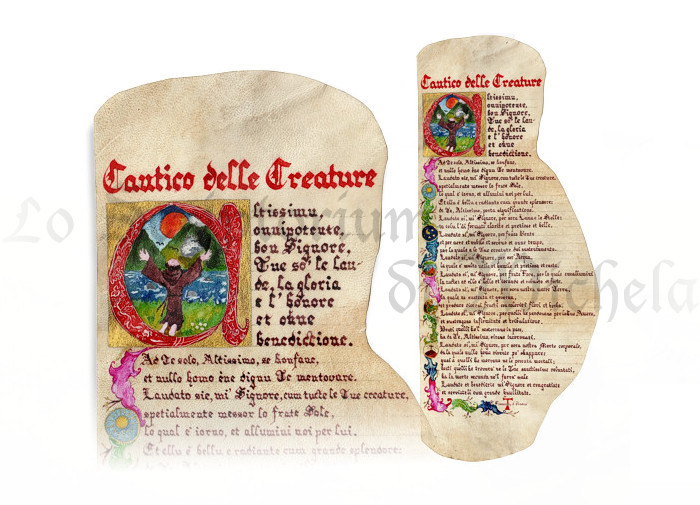 Cantico delle Creature
Altissimu,
onnipotente,
bon Signore,
Tue so' le lau-
de, la gloria
e l'honore
et onne
benedictione.
Ad Te solo, Altissimo, se konfane,
et nullo homo ène dignu Te mentovare.
Laudato sie, mi' Signore, cum tucte le Tue creature,
spetialmente messor lo frate Sole,
lo qual è iorno, et allumini noi per lui.
Et ellu è bellu e radiante cum grande splendore:
Cantico delle Creature
Altissimu,
onnipotente,
bon Signore,
Tue so' le lau-
de, la gloria
e l'honore
et onne
benedictione.
Ad Te solo, Altissimo, se konfane,
et nullo homo ène dignu Te mentovare.
Laudato sie, mi' Signore, cum tucte le Tue creature,
spetialmente messor lo frate Sole,
lo qual è iorno, et allumini noi per lui.
Et ellu è bellu e radiante cum grande splendore:
de Te, Altissimo, porta significatione.
Laudato si', mi' Signore, per sora Luna e le Stelle:
in celu l'ài formate clarite et pretiose et belle.
Laudato si', mi' Signore, per frate Vento
et per aere et nubilo et sereno et onne tempo,
per lo quale a le Tue creature dài sustentamento.
Laudato si', mi' Signore, per sor'Acqua,
la quale è molto utile et humile et pretiosa et casta.
Laudato si', mi' Signore, per frate Focu, per lo quale ennallumini
la nocte: et ello è bello et iocundo et robusto et forte.
Laudato si', mi' Signore, per sora nostra matre Terra,
la quale ne sustenta et governa,
et produce diversi fructi con coloriti fiori et herba.
Laudato si', mi' Signore, per quelli ke perdonano per lo Tuo Amore,
et sostengono infirmitate et tribulatione.
Beati quelli ke'l sosterrano in pace,
ka da Te, Altissimo, sirano incoronati.
Laudato si', mi' Signore, per sora nostra Morte corporale,
da la quale nullu homo vivente pò skappare:
guai a quelli ke morrano ne le peccata mortali;
beati quelli ke trovarà ne le Tue sanctissime voluntati,
ka la morte secunda no 'l farrà male.
Laudate et benedicete mi' Signore et rengratiate
et serviateli cum grande humilitate.